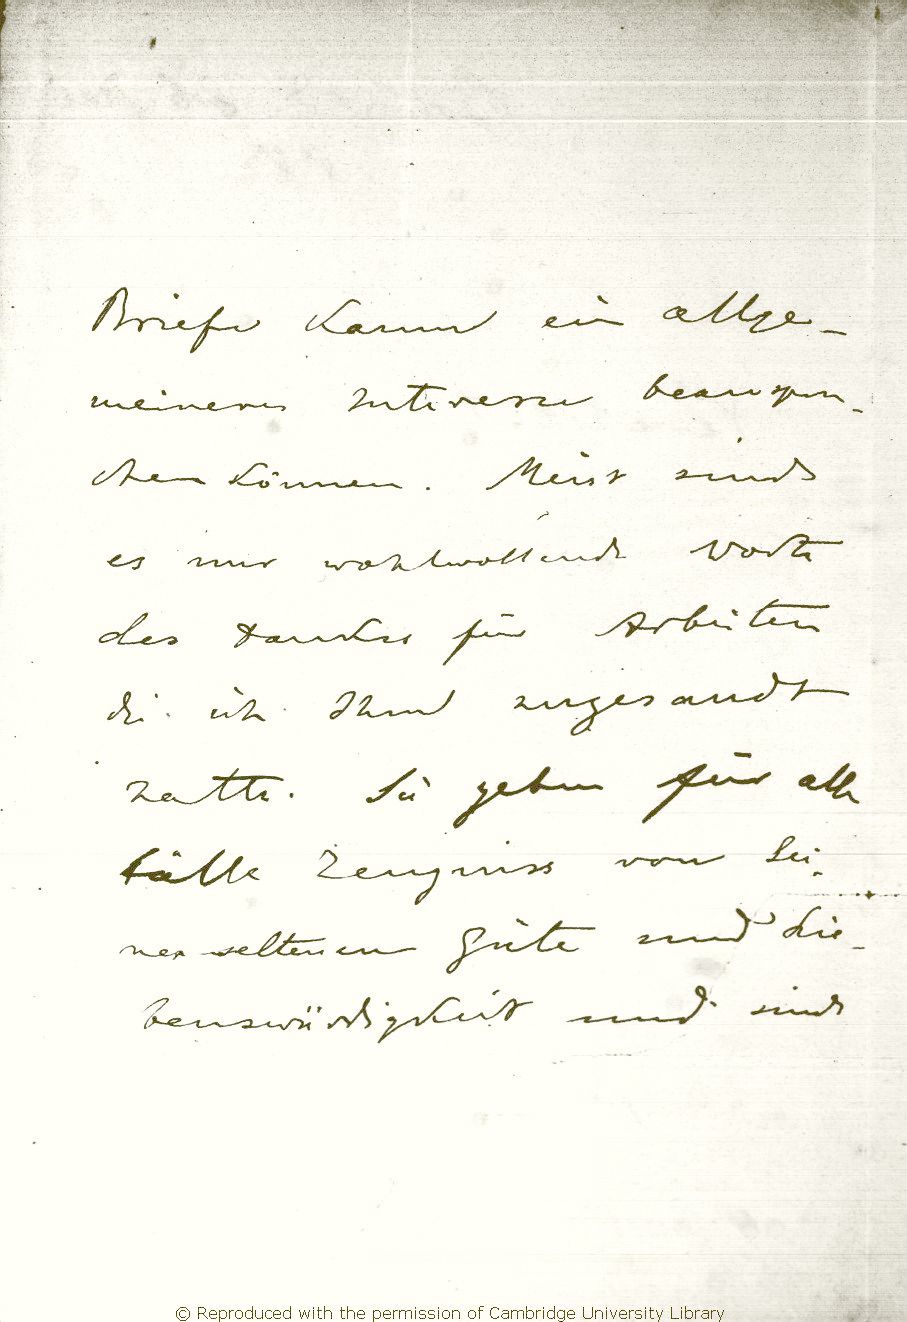 Briefe kaum ein allge-
meineres Interesse beanspru-
chen können. Meist sind
es nur wohlwollende Worte
des Dankes für Arbeiten
die ich Ihm zugesandt
hatte. Sie geben für alle
Fälle Zeugniss von Sei-
ner seltenen Güte und Lie-
benswürdigkeit und sind
© Reproduced with the permission of Cambridge University Library